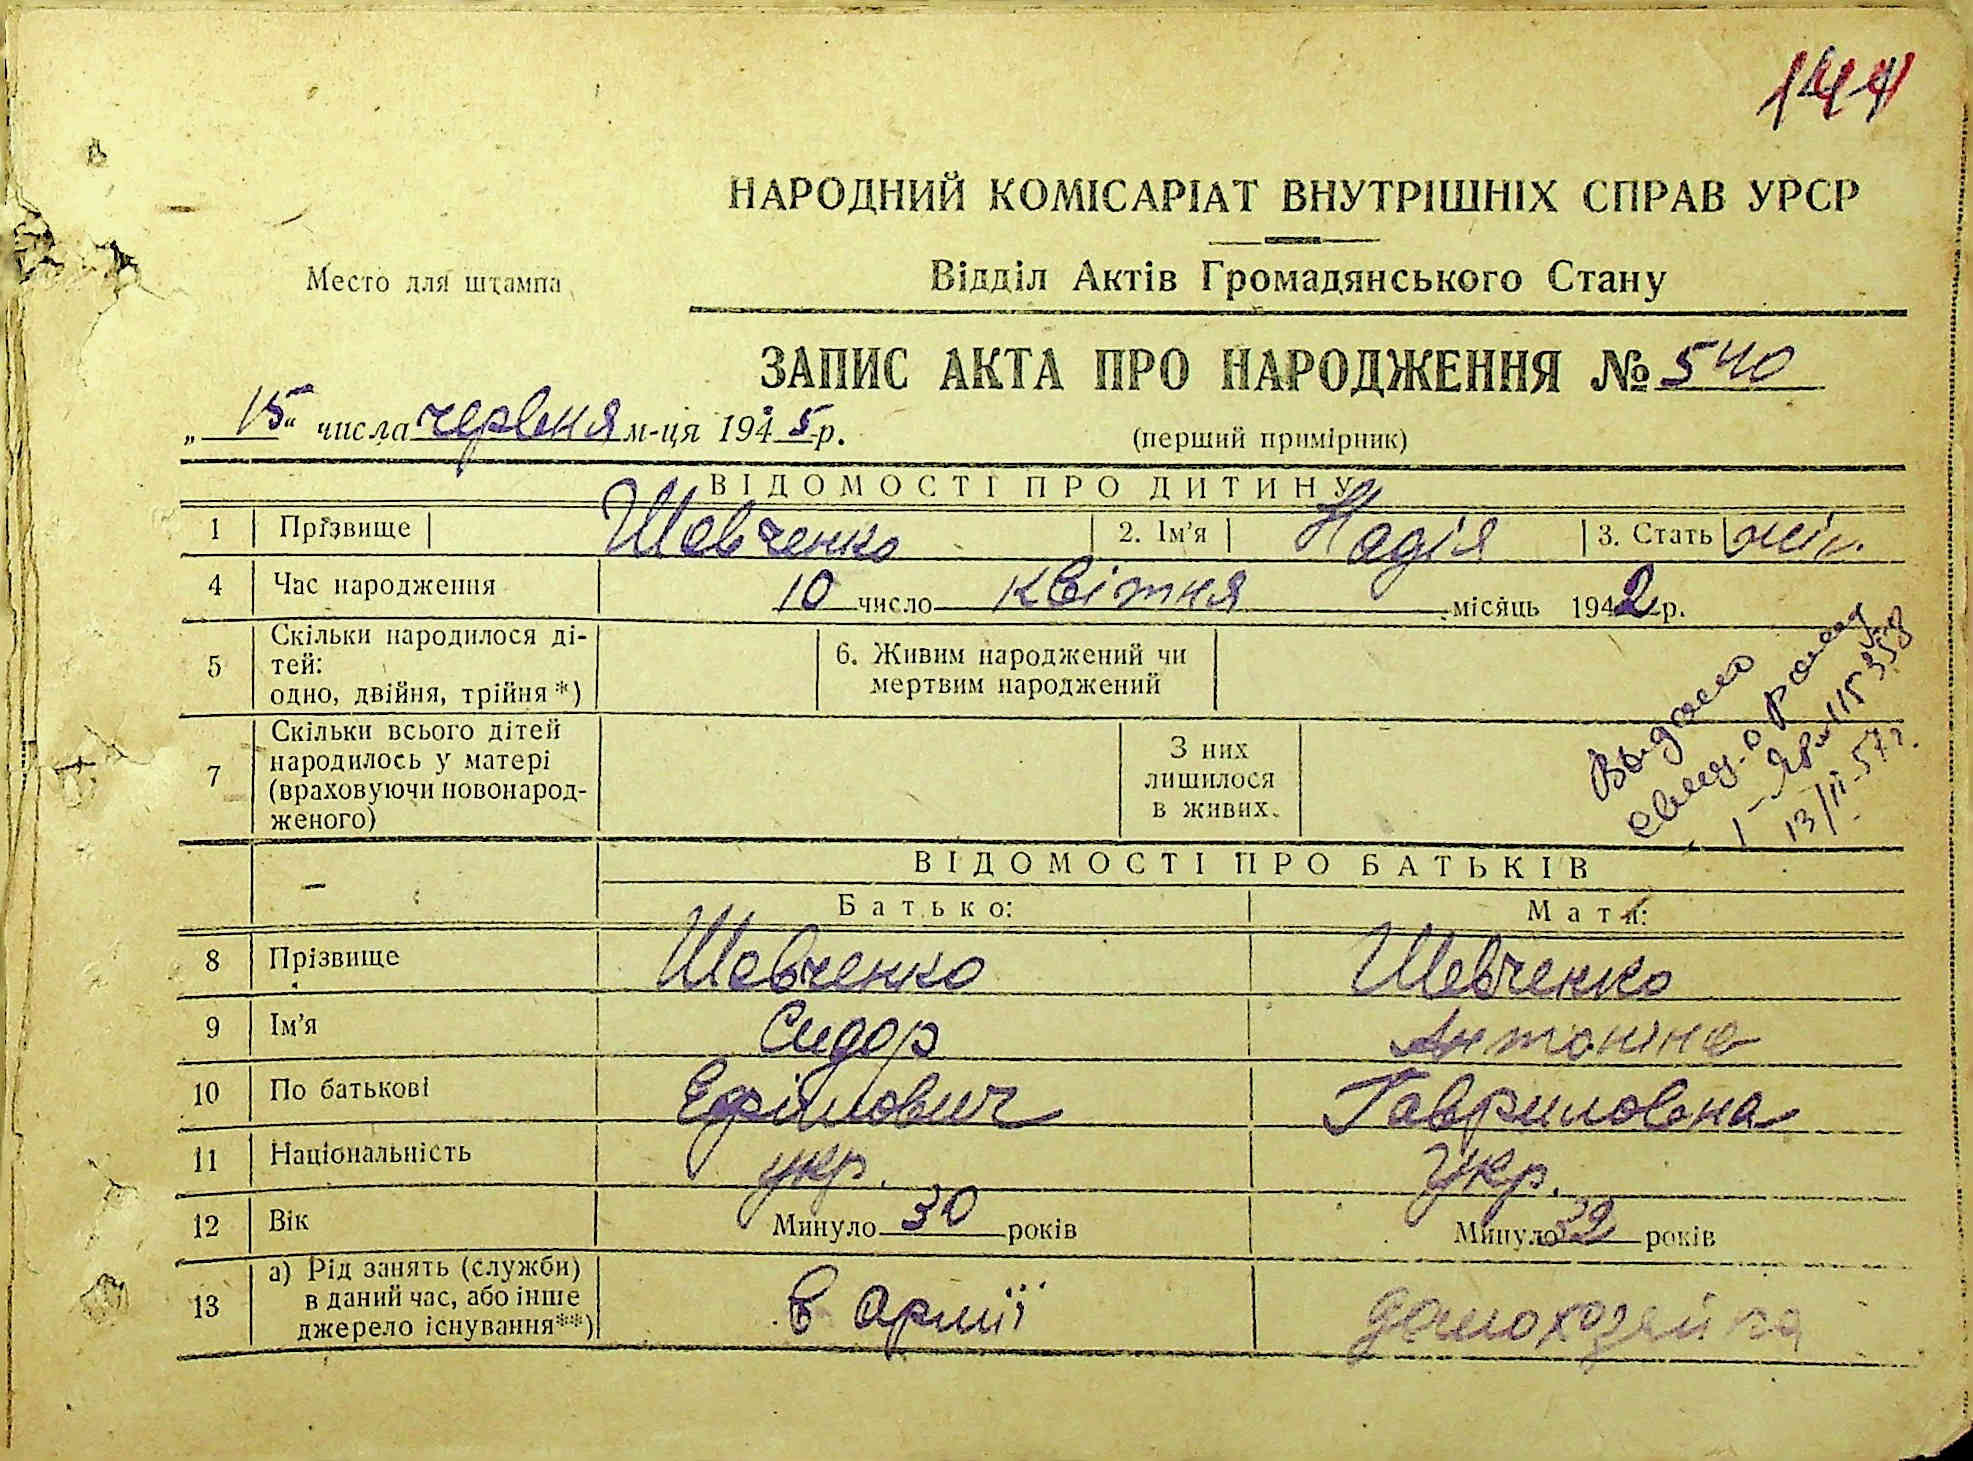 144
НАРОДНИЙ КОМІСАРІАТ ВНУТРІШНІХ СПРАВ УРСР
Место для штампа
Відділ Актів Громадянського Стану
ЗАПИС АКТА ПРО НАРОДЖЕННЯ № 540
„15“ числа червня м-ця 1945 р.
(перший примірник)
ВІДОМОСТІ ПРО ДИТИНУ
1 Прізвище Шевченко 2. Ім'я Надія 3. Стать жін.
4 Час народження 10 число квітня місяць 1942 р.
5 Скільки народилося ді-
тей:
одно, двійня, трійня *)
6. Живим народжений чи
мертвим народжений
7 Скільки всього дітей
народилось у матері
(враховуючи новонарод-
женого)
З них
лишилося
в живих.
Выдано
свид. о рожд
13/II-57 г.
ВІДОМОСТІ ПРО БАТЬКІВ
– Батько: Мати:
8 Прізвище Шевченко Шевченко
9 Ім'я Сидор Антоніна
10 По батькові Ефімович Гавриловна
11 Національність укр. Укр.
12 Вік Минуло 30 років Минуло років
13 а) Рід занять (служби)
в даний час, або інше
джерело існування**)
в армії домохозяйка